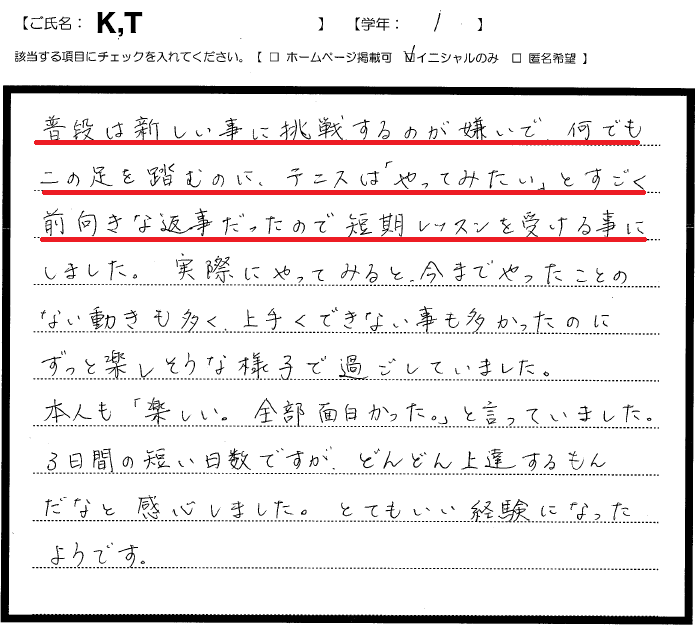 【ご氏名： K,T 】 【学年： 1 】
該当する項目にチェックを入れてください。【 □ ホームページ掲載可 ☑イニシャルのみ □ 匿名希望 】
普段は新しい事に挑戦するのが嫌いで、何でも
二の足を踏むのに、テニスは「やってみたい」とすごく
前向きな返事だったので短期レッスンを受ける事に
しました。 実際にやってみると、今までやったことの
ない動きも多く、上手くできない事も多かったのに
ずっと楽しそうな様子で過ごしていました。
本人も「楽しい。全部面白かった。」と言っていました。
3日間の短い日数ですが、どんどん上達するもん
だなと感心しました。とてもいい経験になった
ようです。